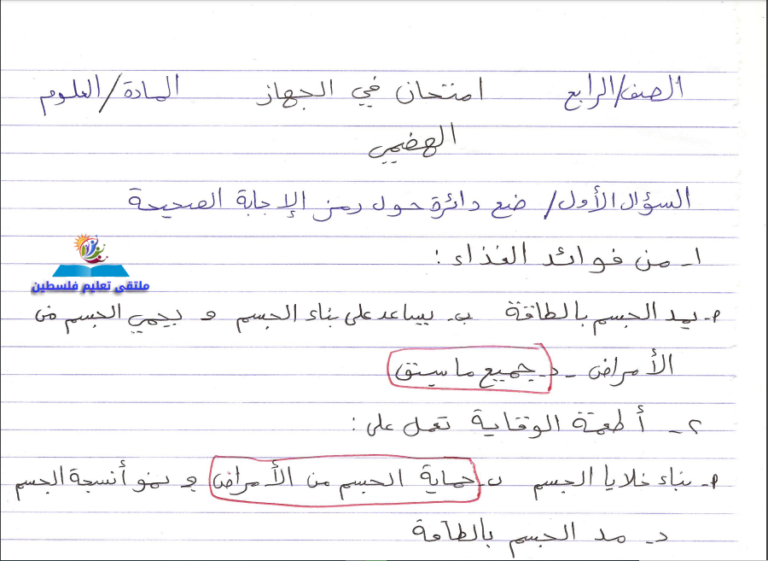 الصف/الرابع امتحان في الجهاز المادة/العلوم
الهضمي
السؤال الأول/ ضع دائرة حول رمز الإجابة الصحيحة
١- من فوائد الغذاء:
ملتقى تعليم فلسطين
م- يمد الجسم بالطاقة ب- يساعد على بناء الجسم و يحمي الجسم من
الأمراض - د- جميع ما سبق
٢- أطعمة الوقاية تعمل على:
م- بناء خلايا الجسم ب- حماية الجسم من الأمراض ج- نمو أنسجة الجسم
د- مد الجسم بالطاقة